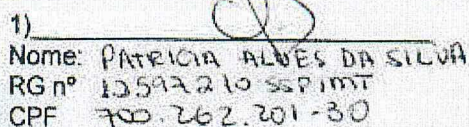 1)
Nome: PATRICIA ALVES DA SILVA
RG nº 12597210 SSP/MT
CPF 700.262.201-30